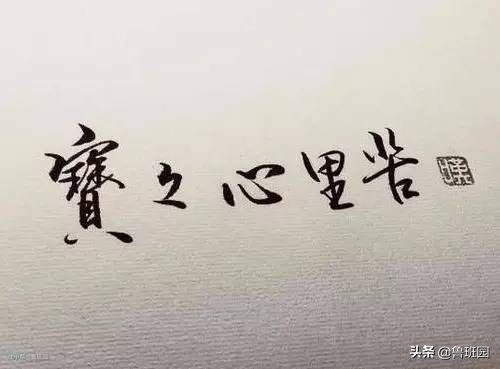 寶々心里苦
头条 @鲁班园